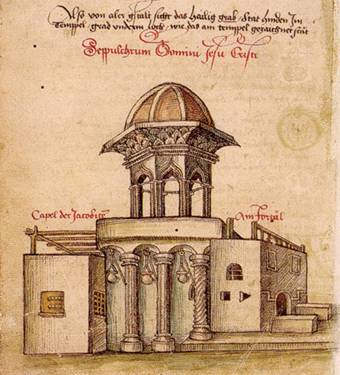 Also von aler gstalt sicht das hailig grab stat hinden im
Tempel grad undern loch wie das am tempel gezaichnet stat
Seppulchrum Domini Jesu Cristi
Capel der Jacobitẽ
Am forzal